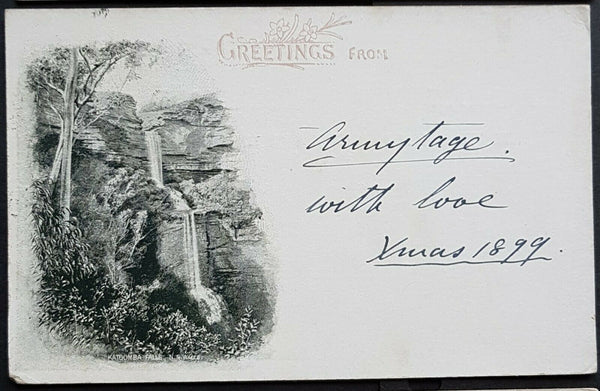 GREETINGS FROM
Armytage.
with love
Xmas 1899.
KATOOMBA FALLS, N.S. WALES.